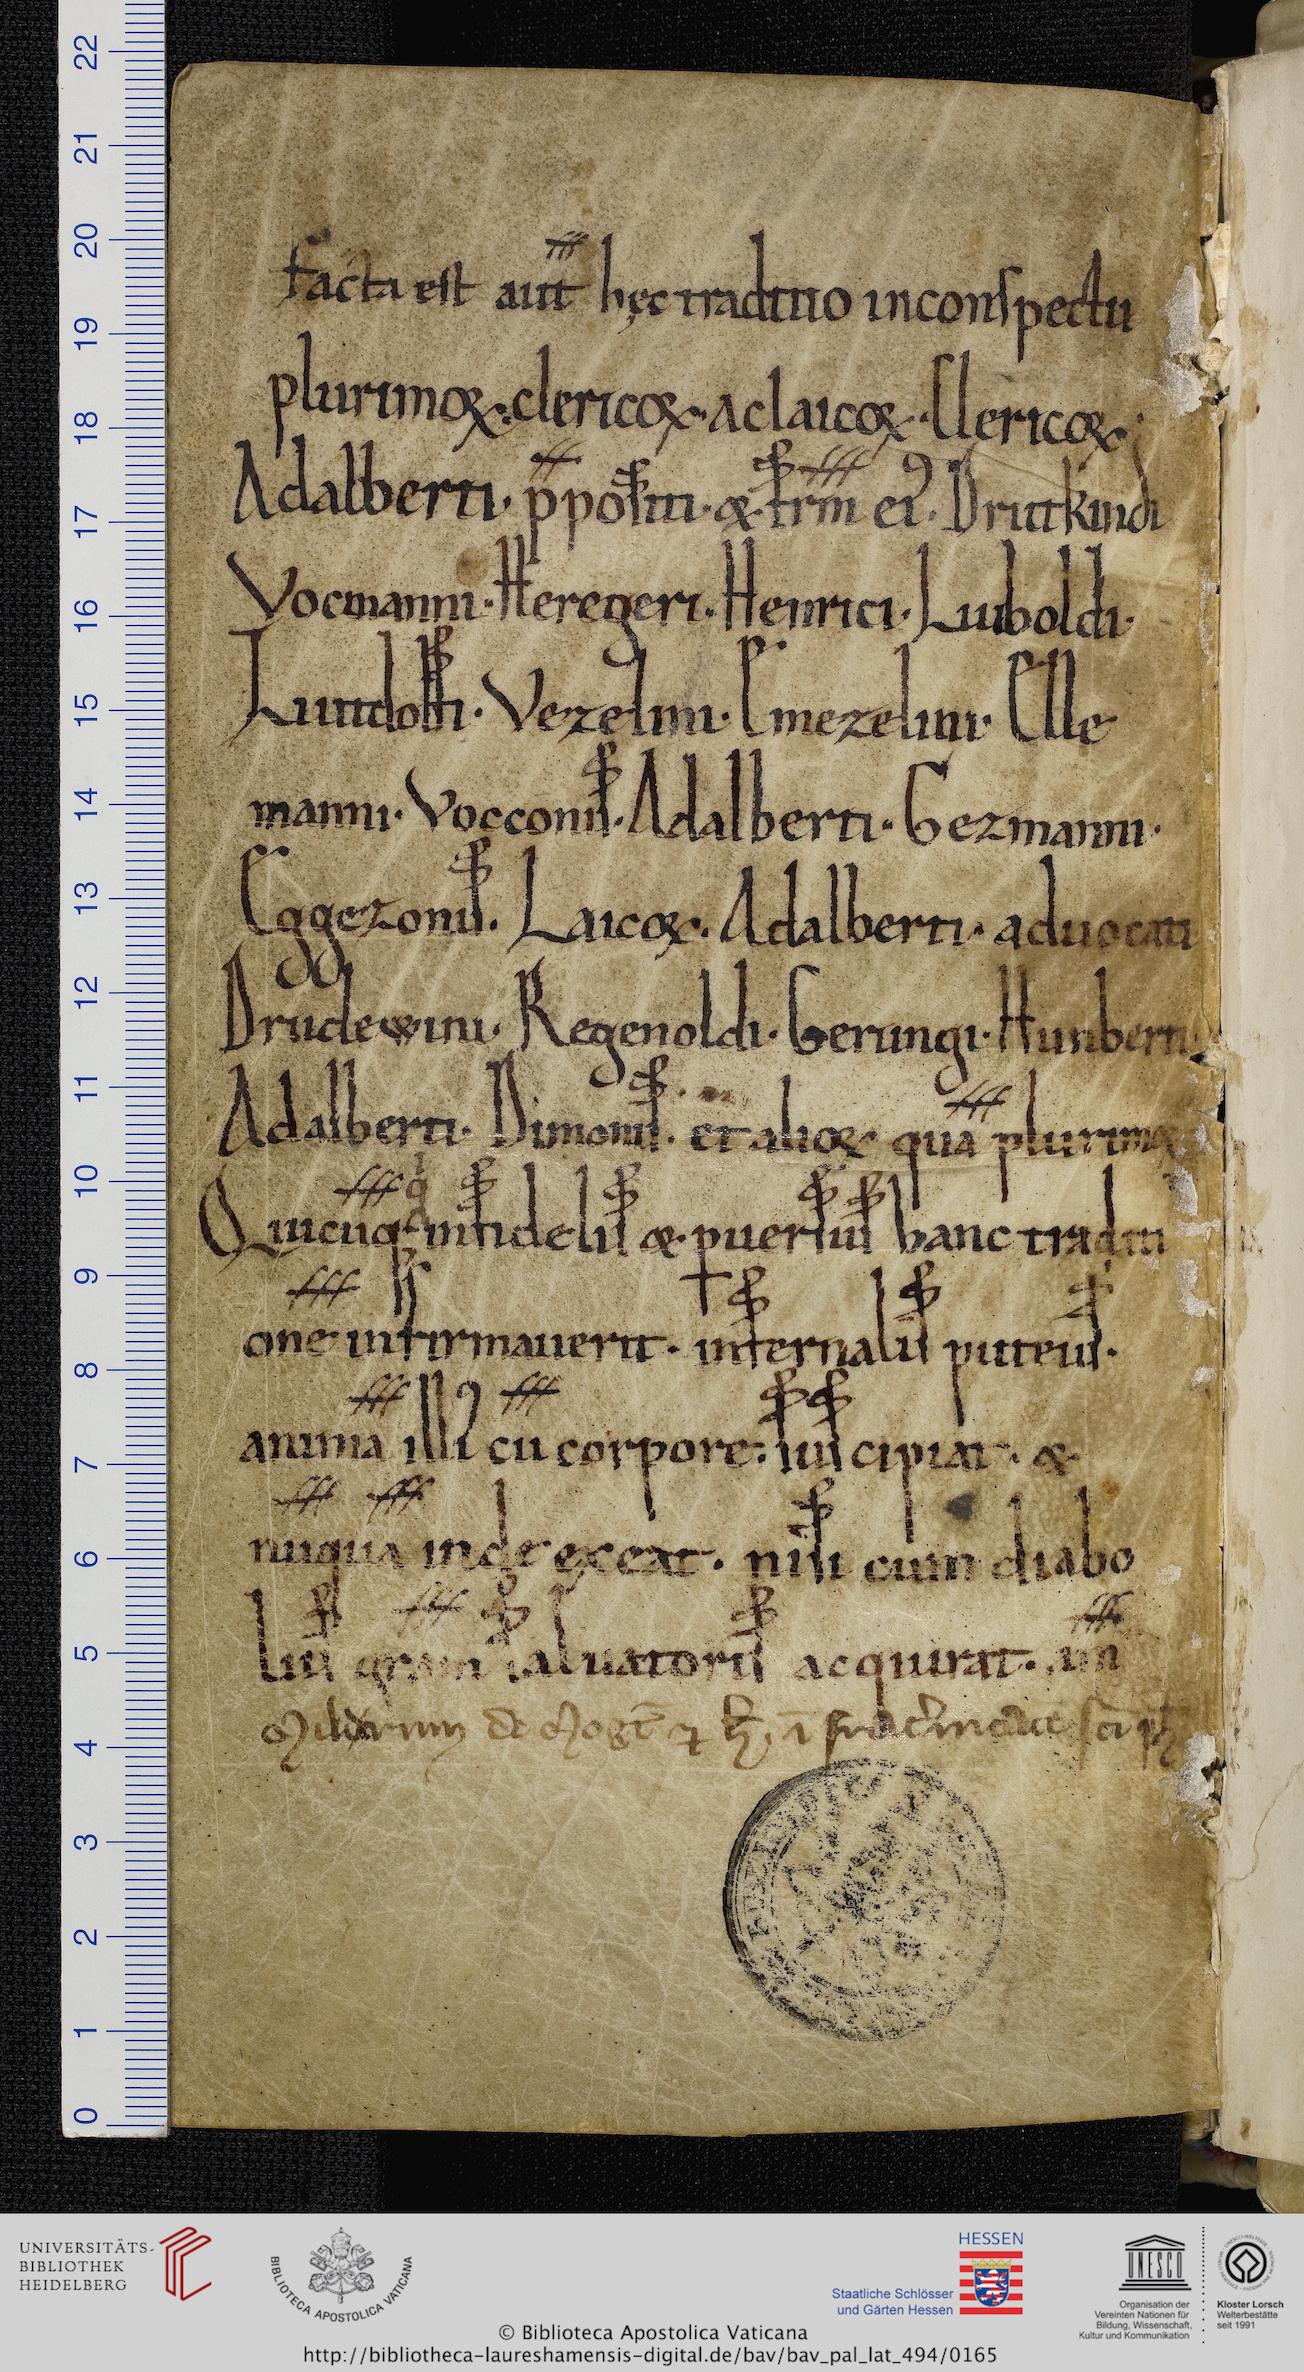 Facta est aut̅ hęc traditio in conspectu
plurimoꝝ. clericoꝝ. ac laicoꝝ. Clericoꝝ
Adalberti. p̅positi. & fr̅m eiꝰ. Drutkindi
Vocmanni. Heregeri. Henrici. Luiboldi.
Luitdolfi. Vezelini. Emezelini. Elle
manni. Vocconis. Adalberti. Gezmanni.
Eggezonis. Laicoꝝ. Adalberti. aduocati
Drudewini. Regenoldi. Gerungi. Hunberti.
Adalberti. Dimonis. et alioꝝ qua̅ plurimoꝝ
Quicu̅q; infidelis & peruersus hanc traditi
one̅ infirmauerit. infernalis puteus.
anima̅ illiꝰ cu̅ corpore. suscipiat. &
nu̅qua̅ inde exeat. nisi cum diabo
lus gra̅m saluatoris acquirat.
de
22
21
20
19
18
17
16
15
14
13
12
11
10
9
8
7
6
5
4
3
2
1
0
UNIVERSITÄTS-
BIBLIOTHEK
HEIDELBERG
BIBLIOTECA APOSTOLICA VATICANA
HESSEN
Staatliche Schlösser
und Gärten Hessen
UNESCO
Organisation der
Vereinten Nationen für
Bildung, Wissenschaft,
Kultur und Kommunikation
Kloster Lorsch
Welterbestätte
seit 1991
© Biblioteca Apostolica Vaticana
http://bibliotheca-laureshamensis-digital.de/bav/bav_pal_lat_494/0165